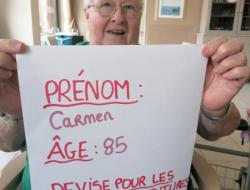 PRÉNOM :
Carmen
ÂGE : 85
DEVISE POUR LES